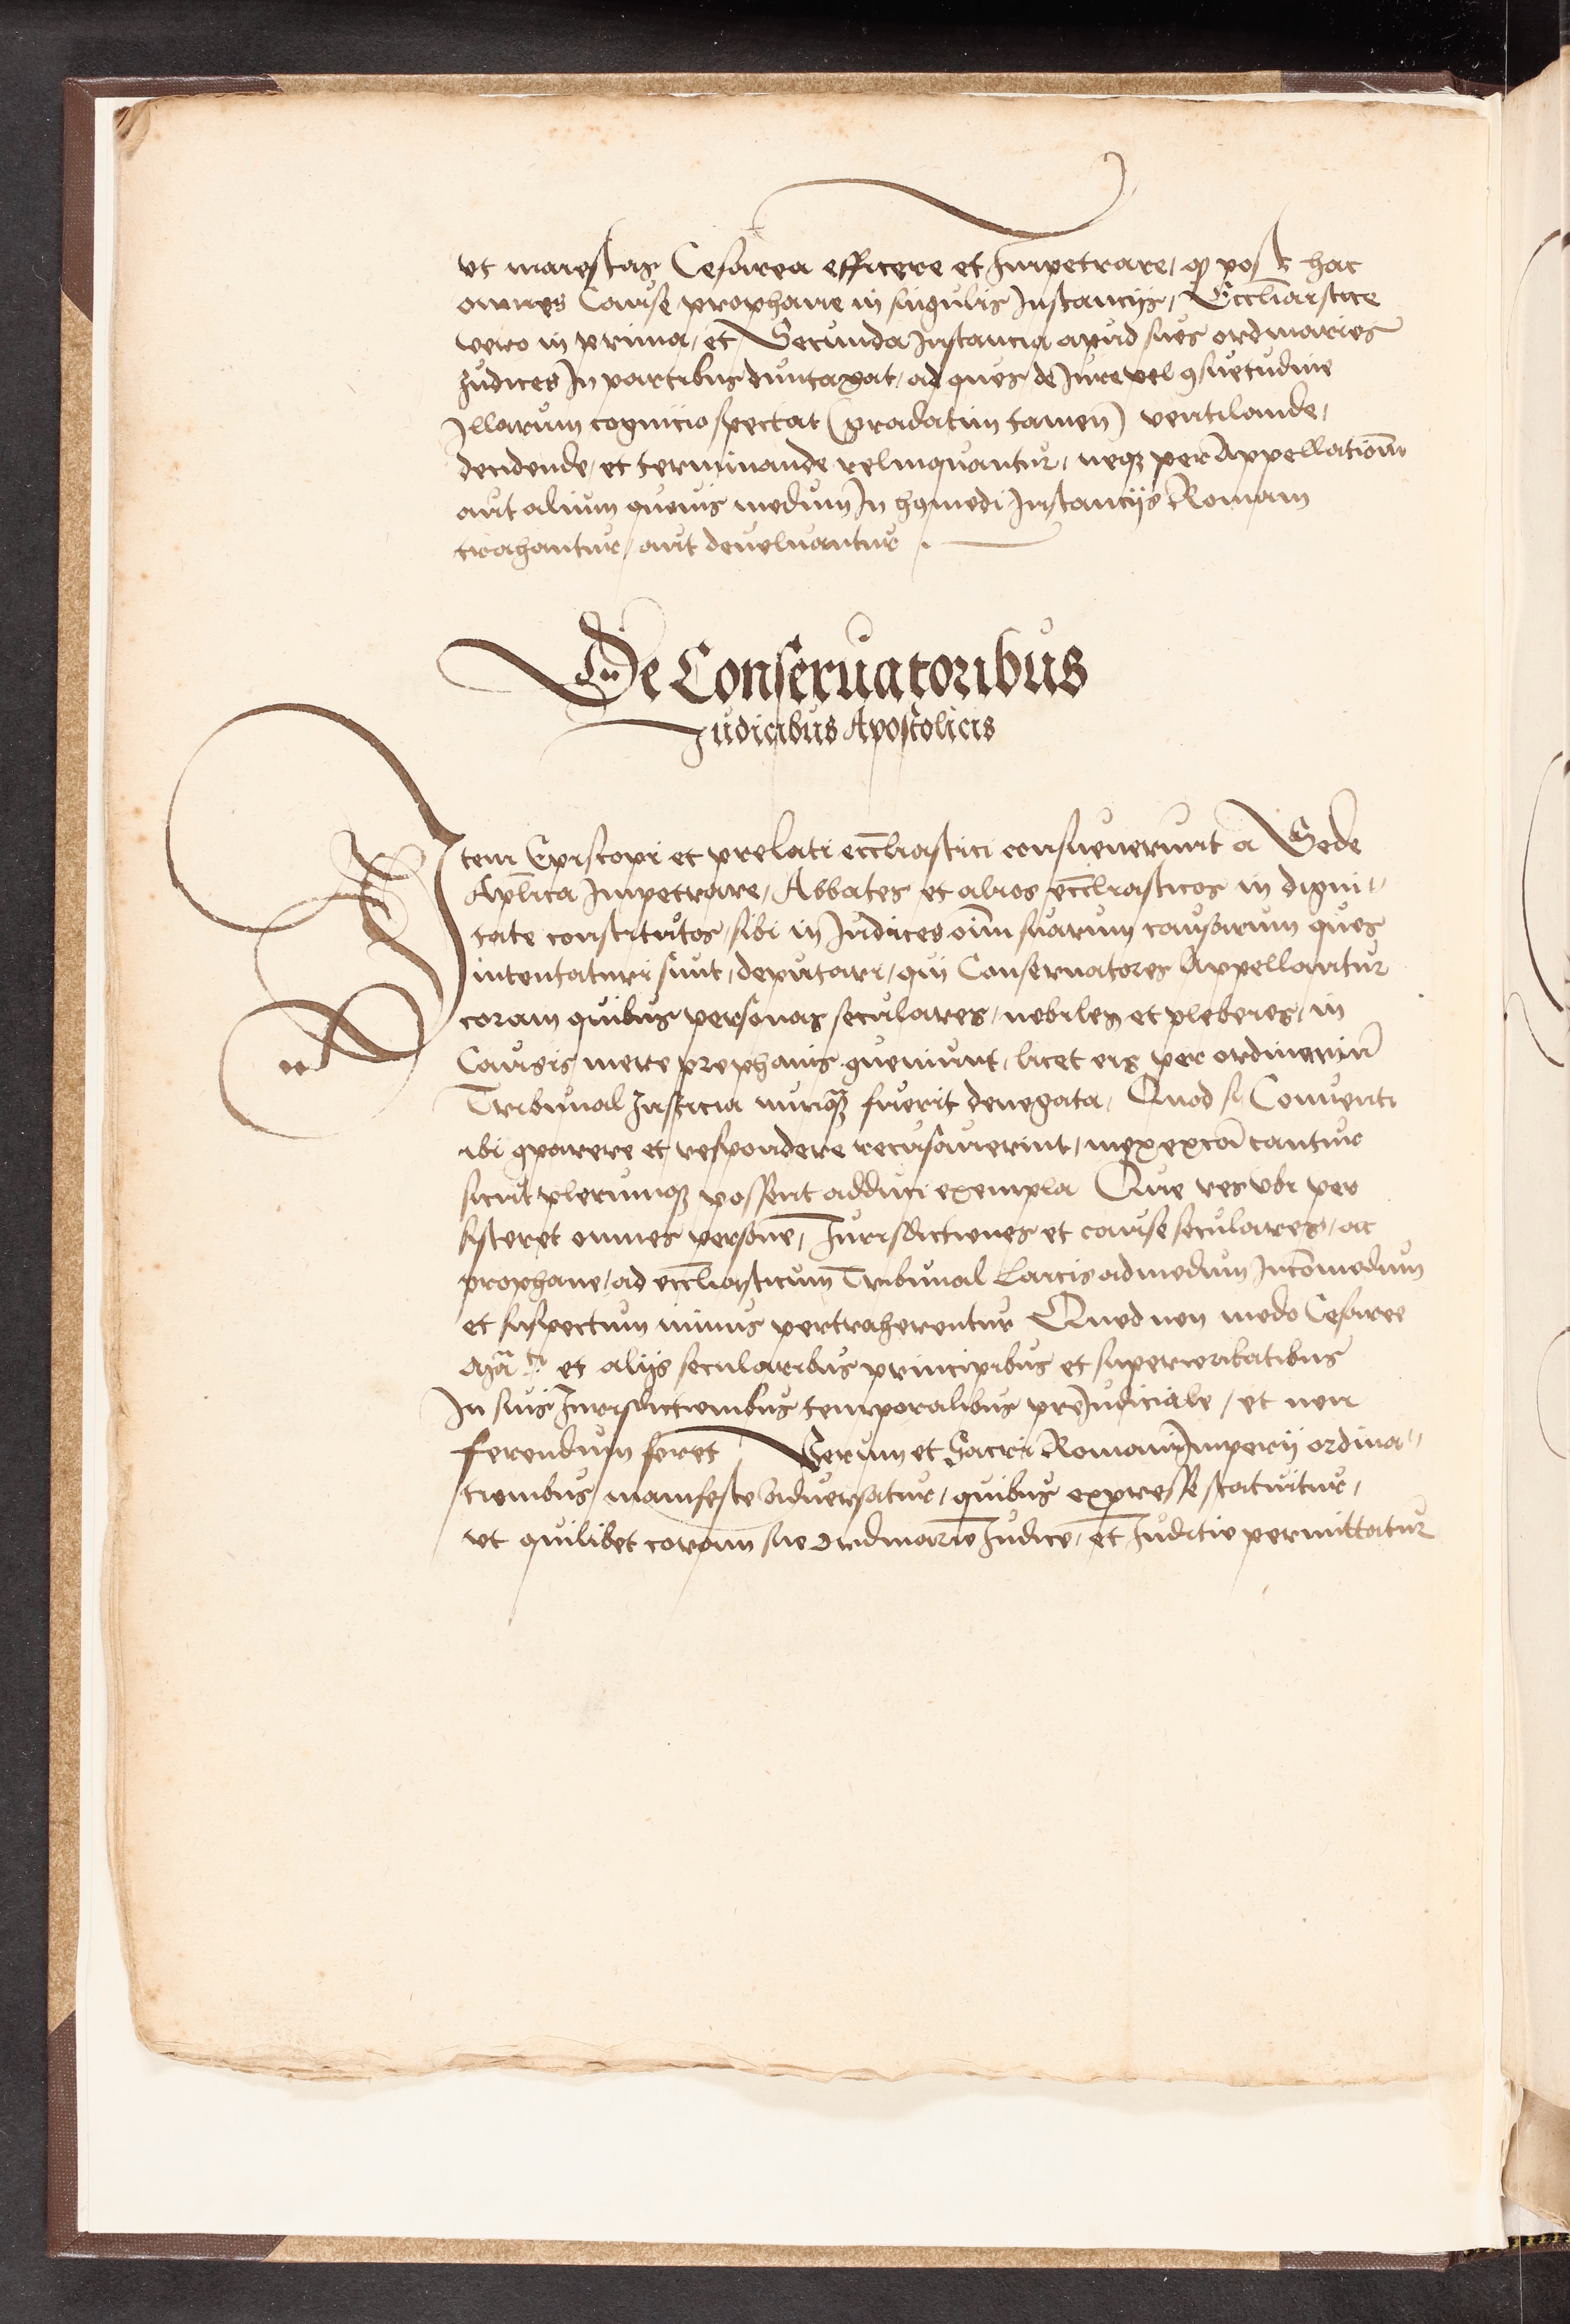 vt maiestas Cesarea efficere et Impetrare, ꝙ post hac
omnes Cause prophane in singulis Instancijs, Eccl̄iastice
vero in prima, et Secunda Instancia apud suos ordinarios
Judices In partibus duntaxat, ad quos, de Jure vel ꝯsuetudine
Illarum cognicio spectat (gradatim tamen) ventilande,
decidende, et terminande relinquantur, neqꝫ per Appellationē
aut alium quouis modum In hꝰmodi Instancijs Romam
trahantur, aut deuoluantur.
De Conseruatoribus
Judicibus Apostolicis
Item Episcopi et prelati eccl̄iastici consueuerunt a Sede
Apl̄ica Impetrare, Abbates et alios eccl̄iasticos in digni-
tate constitutos, sibi in Judices oīm suarum causarum quos
intentaturi sunt, deputari, qui Conseruatores Appellantur
coram quibus personas seculares, nobiles et plebeios, in
Causis mere prophanis ꝯueniunt, licet eis per ordinariū
Tribunal Justicia nunqꝫ fuerit denegata, Quod si Conuenti
ibi ꝯparere et respondere recusauerint, mox excōicantur
sicut plerumqꝫ possent adduci exempla Que res vbi per
sisteret omnes persone, Jurisdictiones et cause seculares, ac
prophane, ad eccl̄iasticum Tribunal Laicis admodum Incōmodum
et suspectum nimis pertraherentur Quod non modo Cesaree
Mᵗⁱ et alijs secularibus principibus et superioritatibus
In suis Jurisdictionibus temporalibus preiudiciale, et non
ferendum foret Verum et Sacri Romani Imperij ordina-
tionibus manifeste aduersatur, quibus expresse statuitur,
vt quilibet coram suo ordinario Judice, et Juditio permittatur